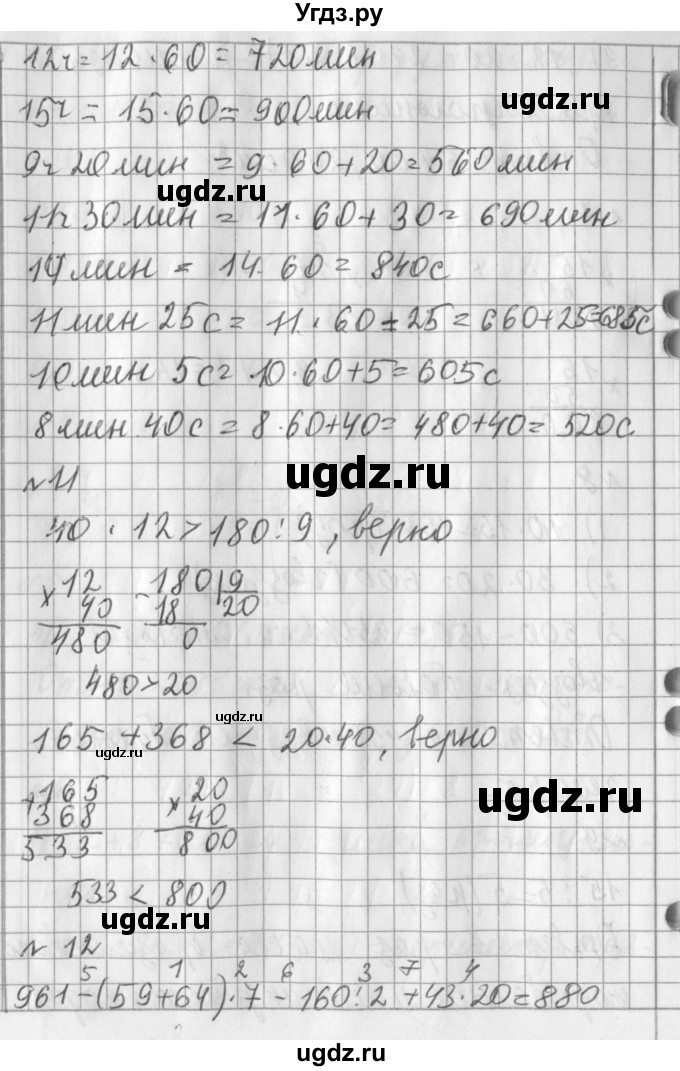 Угдз.ру
12ч = 12 · 60 = 720мин
15ч = 15 · 60 = 900мин
9ч 20мин = 9 · 60 + 20 = 560мин
ugdz.ru
11ч 30мин = 11 · 60 + 30 = 690мин
14мин = 14 · 60 = 840с
11мин 25с = 11 · 60 + 25 = 660 + 25 = 685с
10мин 5с = 10 · 60 + 5 = 605с
8мин 40с = 8 · 60 + 40 = 480 + 40 = 520с
ugdz.ru
№11
40 · 12 > 180 : 9, верно
× 12 − 180 | 9
40 18 20
480 0
ugdz.ru
480 > 20
ugdz.ru
165 + 368 < 20 · 40, верно
ugdz.ru
+ 165 × 20
368 40
533 800
ugdz.ru
533 < 800
ugdz.ru
№ 12
5 1 2 6 3 7 4
961 − (59 + 64) · 7 − 160 : 2 + 43 · 20 = 880
ugdz.ru